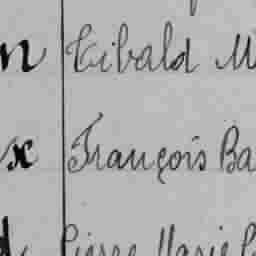 n Tibald M
x François Ba
Pierre Marie